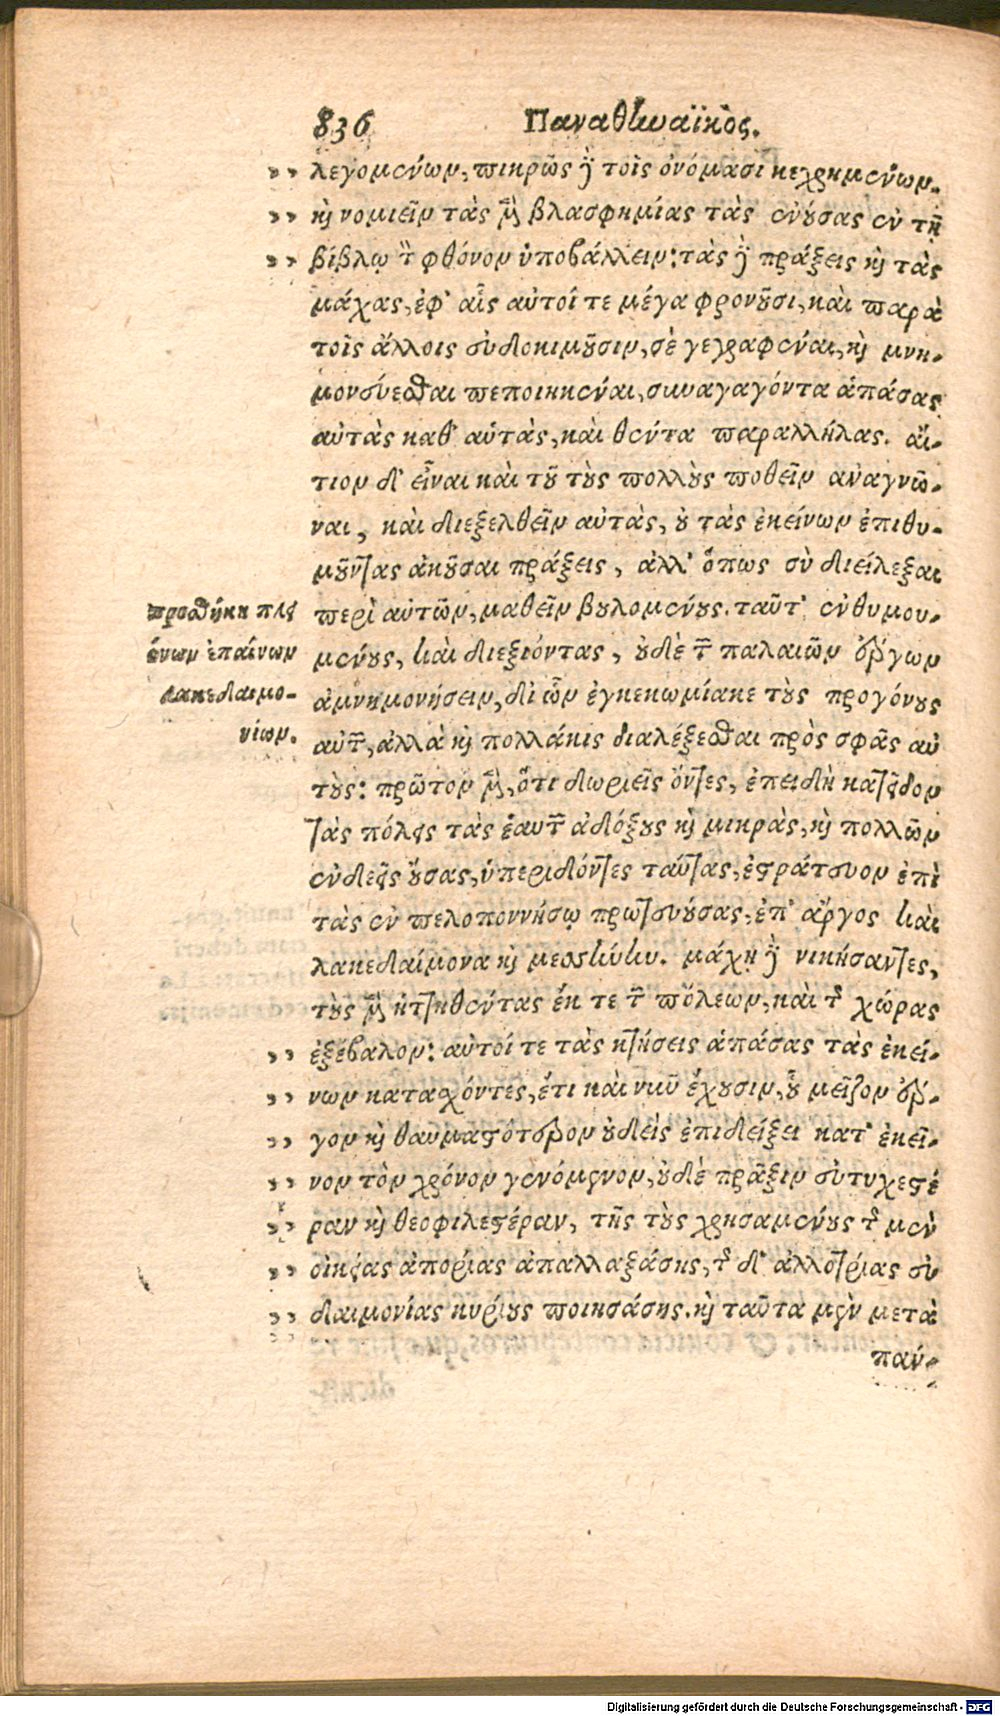 836 Παναθηναϊκὸς.
λεγομένων, πικρῶς δὲ τοῖς ὀνόμασι κεχρημένων.
καὶ νομιεῖν τὰς μὲν βλασφημίας τὰς ἐνούσας ἐν τῇ
βίβλῳ τὸν φθόνον ὑποβάλλειν: τὰς δὲ πράξεις καὶ τὰς
μάχας, ἐφ' αἷς αὐτοί τε μέγα φρονοῦσι, καὶ παρὰ
τοῖς ἄλλοις εὐδοκιμοῦσιν, σὲ γεγραφέναι, καὶ μνη-
μονεύεσθαι πεποιηκέναι, συναγαγόντα ἁπάσας
αὐτὰς καθ' αὑτὰς, καὶ θέντα παραλλήλας. αἴ-
τιον δ' εἶναι καὶ τοῦ τοὺς πολλοὺς ποθεῖν ἀναγνῶ-
ναι, καὶ διεξελθεῖν αὐτὰς, οὐ τὰς ἐκείνων ἐπιθυ-
μοῦντας ἀκοῦσαι πράξεις, ἀλλ' ὅπως σὺ διείλεξαι
περὶ αὐτῶν, μαθεῖν βουλομένους. ταῦτ' ἐνθυμου-
μένους, καὶ διεξιόντας, οὐδὲ τῶν παλαιῶν ἔργων
ἀμνημονήσειν, δι' ὧν ἐγκεκωμίακε τοὺς προγόνους
αὐτῶν, ἀλλὰ καὶ πολλάκις διαλέξεσθαι πρὸς σφᾶς αὐ
τούς: πρῶτον μὲν, ὅτι δωριεῖς ὄντες, ἐπειδὴ κατεῖδον
τὰς πόλεις τὰς ἑαυτῶν ἀδόξους καὶ μικρὰς, καὶ πολλῶν
ἐνδεεῖς οὔσας, ὑπεριδόντες ταύτας, ἐστράτευον ἐπὶ
τὰς ἐν πελοποννήσῳ πρωτευούσας, ἐπ' ἄργος καὶ
λακεδαίμονα καὶ μεσσήνην. μάχῃ δὲ νικήσαντες,
τοὺς μὲν ἡττηθέντας ἔκ τε τῶν πόλεων, καὶ τῆς χώρας
ἐξέβαλον: αὐτοί τε τὰς κτήσεις ἁπάσας τὰς ἐκεί-
νων κατασχόντες, ἔτι καὶ νῦν ἔχουσιν, οὗ μεῖζον ἔρ-
γον καὶ θαυμαστότερον οὐδεὶς ἐπιδείξει κατ' ἐκεῖ-
νον τὸν χρόνον γενόμενον, οὐδὲ πρᾶξιν εὐτυχεστέ
ραν καὶ θεοφιλεστέραν, τῆς τοὺς χρησαμένους τῆς μὲν
οἰκείας ἀπορίας ἀπαλλαξάσης, τῆς δ' ἀλλοτρίας εὐ
δαιμονίας κυρίους ποιησάσης. καὶ ταῦτα μὲν μετὰ
πάν-
προσθήκη πλει
όνων ἐπαίνων
λακεδαιμο-
νίων.